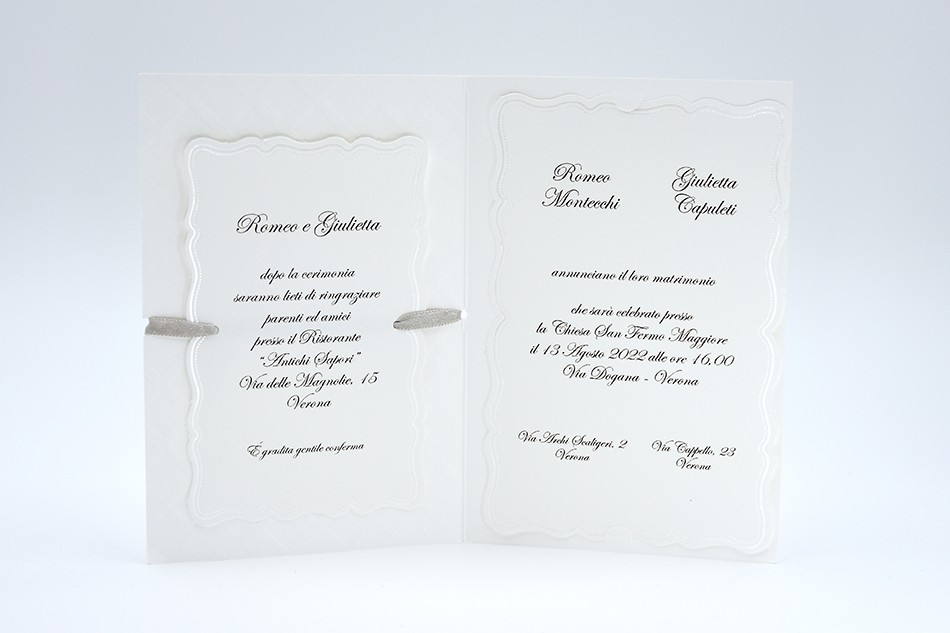 Romeo e Giulietta
dopo la cerimonia
saranno lieti di ringraziare
parenti ed amici
presso il Ristorante
"Antichi Sapori"
Via delle Magnolie, 15
Verona
É gradita gentile conferma
Romeo
Montecchi
Giulietta
Capuleti
annunciano il loro matrimonio
che sarà celebrato presso
la Chiesa San Fermo Maggiore
il 13 Agosto 2022 alle ore 16,00
Via Dogana - Verona
Via Archi Scaligeri, 2
Verona
Via Cappello, 23
Verona